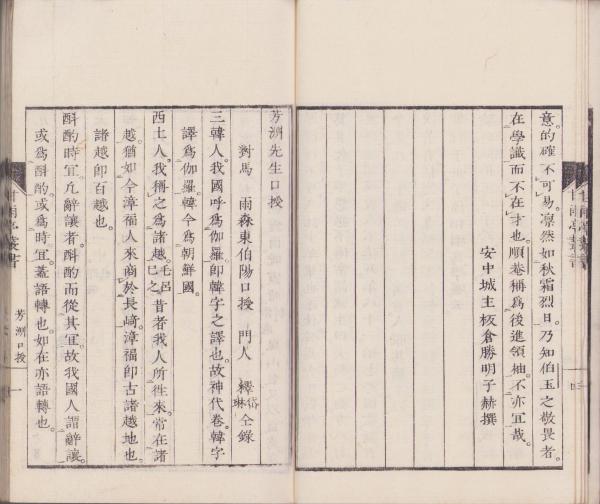 意的確不可易。凛然如秋霜烈日。乃知伯玉之敬畏者。
在學識而不在才也。順菴稱爲後進領袖。不亦宜哉。
安中城主板倉勝明子赫撰
甘雨亭叢書
芳洲先生口授
對馬 雨森東伯陽口授 門人 釋岱琳仝錄
三韓人。我國呼爲伽羅。卽韓字之譯也。故神代卷。韓字
譯爲伽羅。韓今爲朝鮮國。
西土人。我稱之爲諸越。毛呂巳之昔者我人所徃來。常在諸
越。猶如今漳福人來商於長﨑。漳福卽古諸越地也。
諸越卽百越也。
斟酌時宜。凢辭讓者。斟酌而從其宜。故我國人謂辭讓。
或爲斟酌。或爲時宜。葢語轉也。如在亦語轉也。
甘雨亭叢書
芳洲口授
一